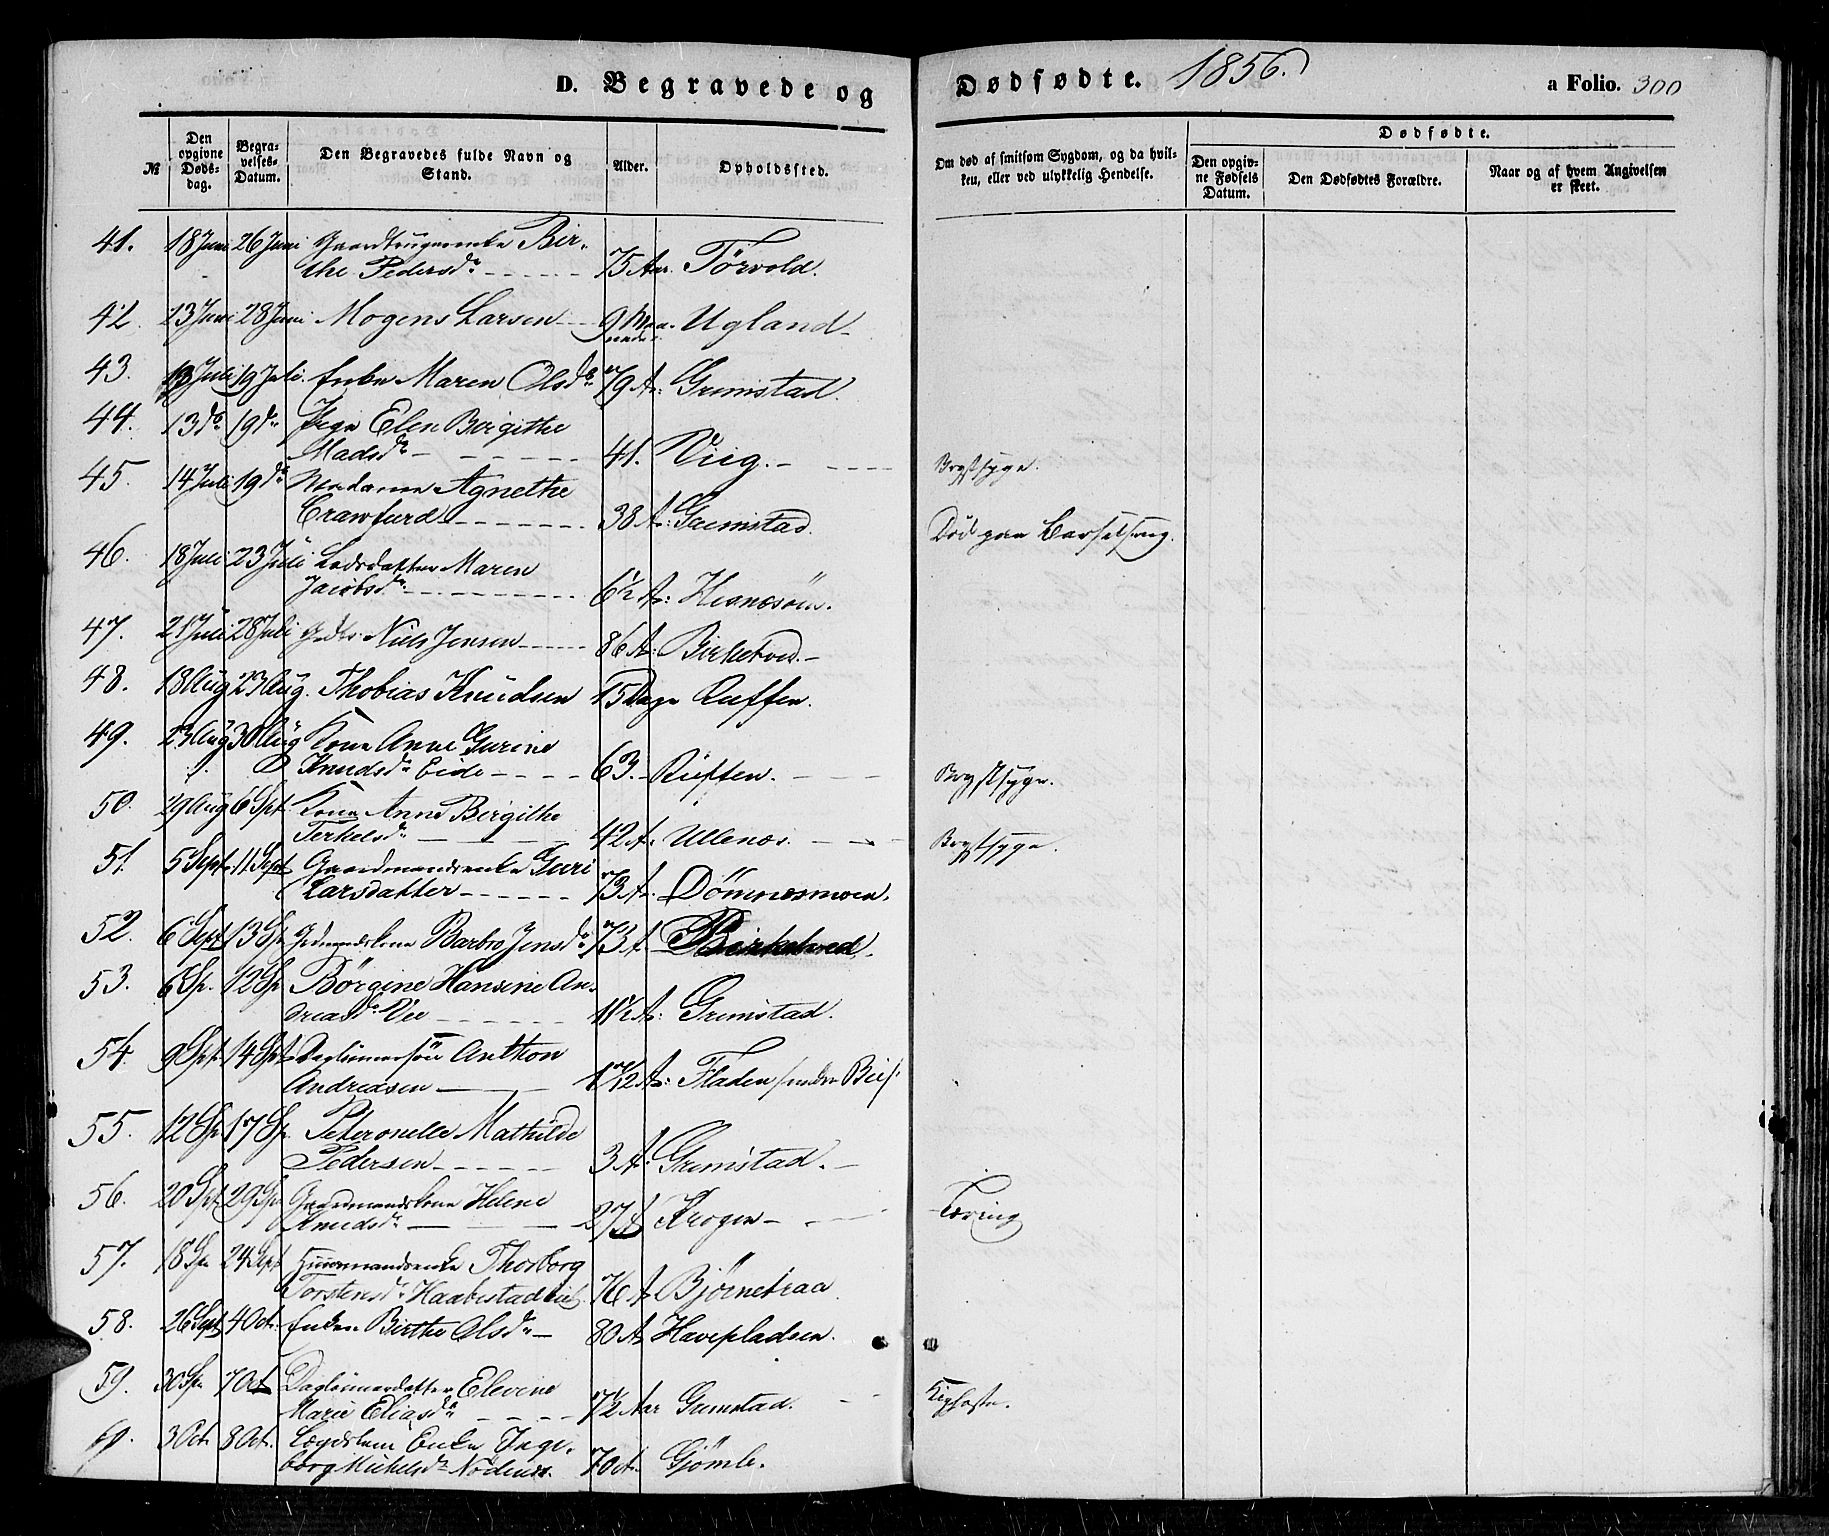 D. Begravede og Dødfødte. 1856. a Folio. 300
№ Den opgivne Dødsdag. Begravelses-Datum. Den Begravedes fulde Navn og Stand. Alder. Opholdssted. Om død af smitsom Sygdom, og da hvilken, eller ved ulykkelig Hendelse. Dødfødte. Den opgivne Fødsels Datum. Den Dødfødtes Forældre. Naar og af hvem Angivelsen er skeet.
41. 18 Juni 26 Juni Gaardbrugerenke Bir-
the Pedersdr 75 Aar. Tørvold.
42. 13 Juni 28 Juni Mogens Larsen 9 Maa- Ugland
neder
43. 13 Juli 19 Juli. Enke Maren Olsdr 79 A: Grimstad.
44. 13 do 19 do Pige Elen Birgithe
Madsdr 41. Vig. Brystsyge.
45. 14 Juli 19 do Madame Agnethe
Crawfurd 38 A: Grimstad. Død paa Barselseng.
46. 18 Juli 23 Juli Lodsdatter Maren
Jacobsdr 6½ A: Hesnesøen.
47. 21 Juli 28 Juli Niels Jensen 86 A: Birketved.
48. 18 Aug 23 Aug. Thobias Knudsen 15 Dage Ruffen.
49. 23 Aug 30 Aug Kone Anne Gurine
Knudsdr Eide 63. Ruffen. Brystsyge.
50. 29 Aug 6 Spt. Kone Anne Birgithe
Terkelsdr 42 A: Ullenæs. Brystsyge.
51. 5 Sept. 11 Sept Gaardmandsenke Guri
Larsdatter 73 A. Dømmesmoen.
52. 6 Sept 13 Sp. Gdmandskone Barbro Jensdr 73 A. Birketved.
53. 6 Sp. 12 Sp Børgine Hansine An-
dreasdr Vee 1½ A: Grimstad.
54. 9 Spt. 14 Spt. Dagleiersøn Anthon
Andreasen 1½ A: Fladen /under Bie/
55. 12 Sp 17 Sp. Peteronelle Mathilde
Pedersen 3 A: Grimstad.
56. 20 Spt. 29 Sp. Gaardmandskone Helene
Knudsdr 27 A Krogen Tæring
57. 18 Sp. 24 Sept Huusmandsenke Thorborg
Torstensdr Haabestad 76 A Bjørnetraa
58. 26 Spt 4 Oct. Enken Birthe Olsdr 80 A. Havepladsen.
59. 30 Sp. 7 Oct Dagleierdatter Elevine
Marie Eliasdr 7½ Aar Grimstad. Kighoste.
60. 3 Oct 8 Oct. Lægdslem Enke Inge-
borg Mickelsdr Nødenes. 70 A. Gjømle.